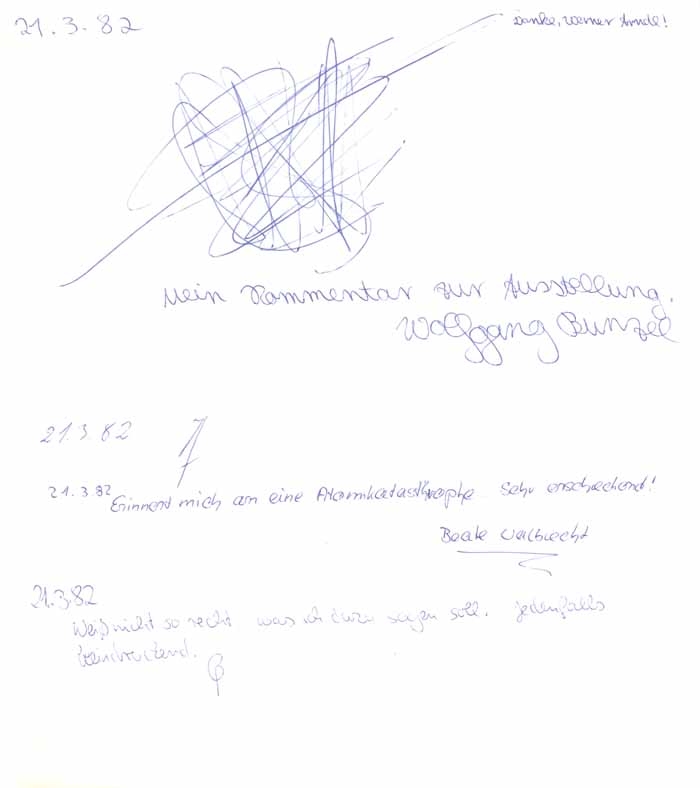 21.3.82
Danke, Werner Arndt!
Mein Kommentar zur Ausstellung.
Wolfgang Bunzel
21.3.82
21.3.82 Erinnert mich an eine Atomkatastrophe. Sehr erschreckend!
Beate
21.3.82
Weiß nicht so recht was ich dazu sagen soll. jedenfalls
beeindruckend.